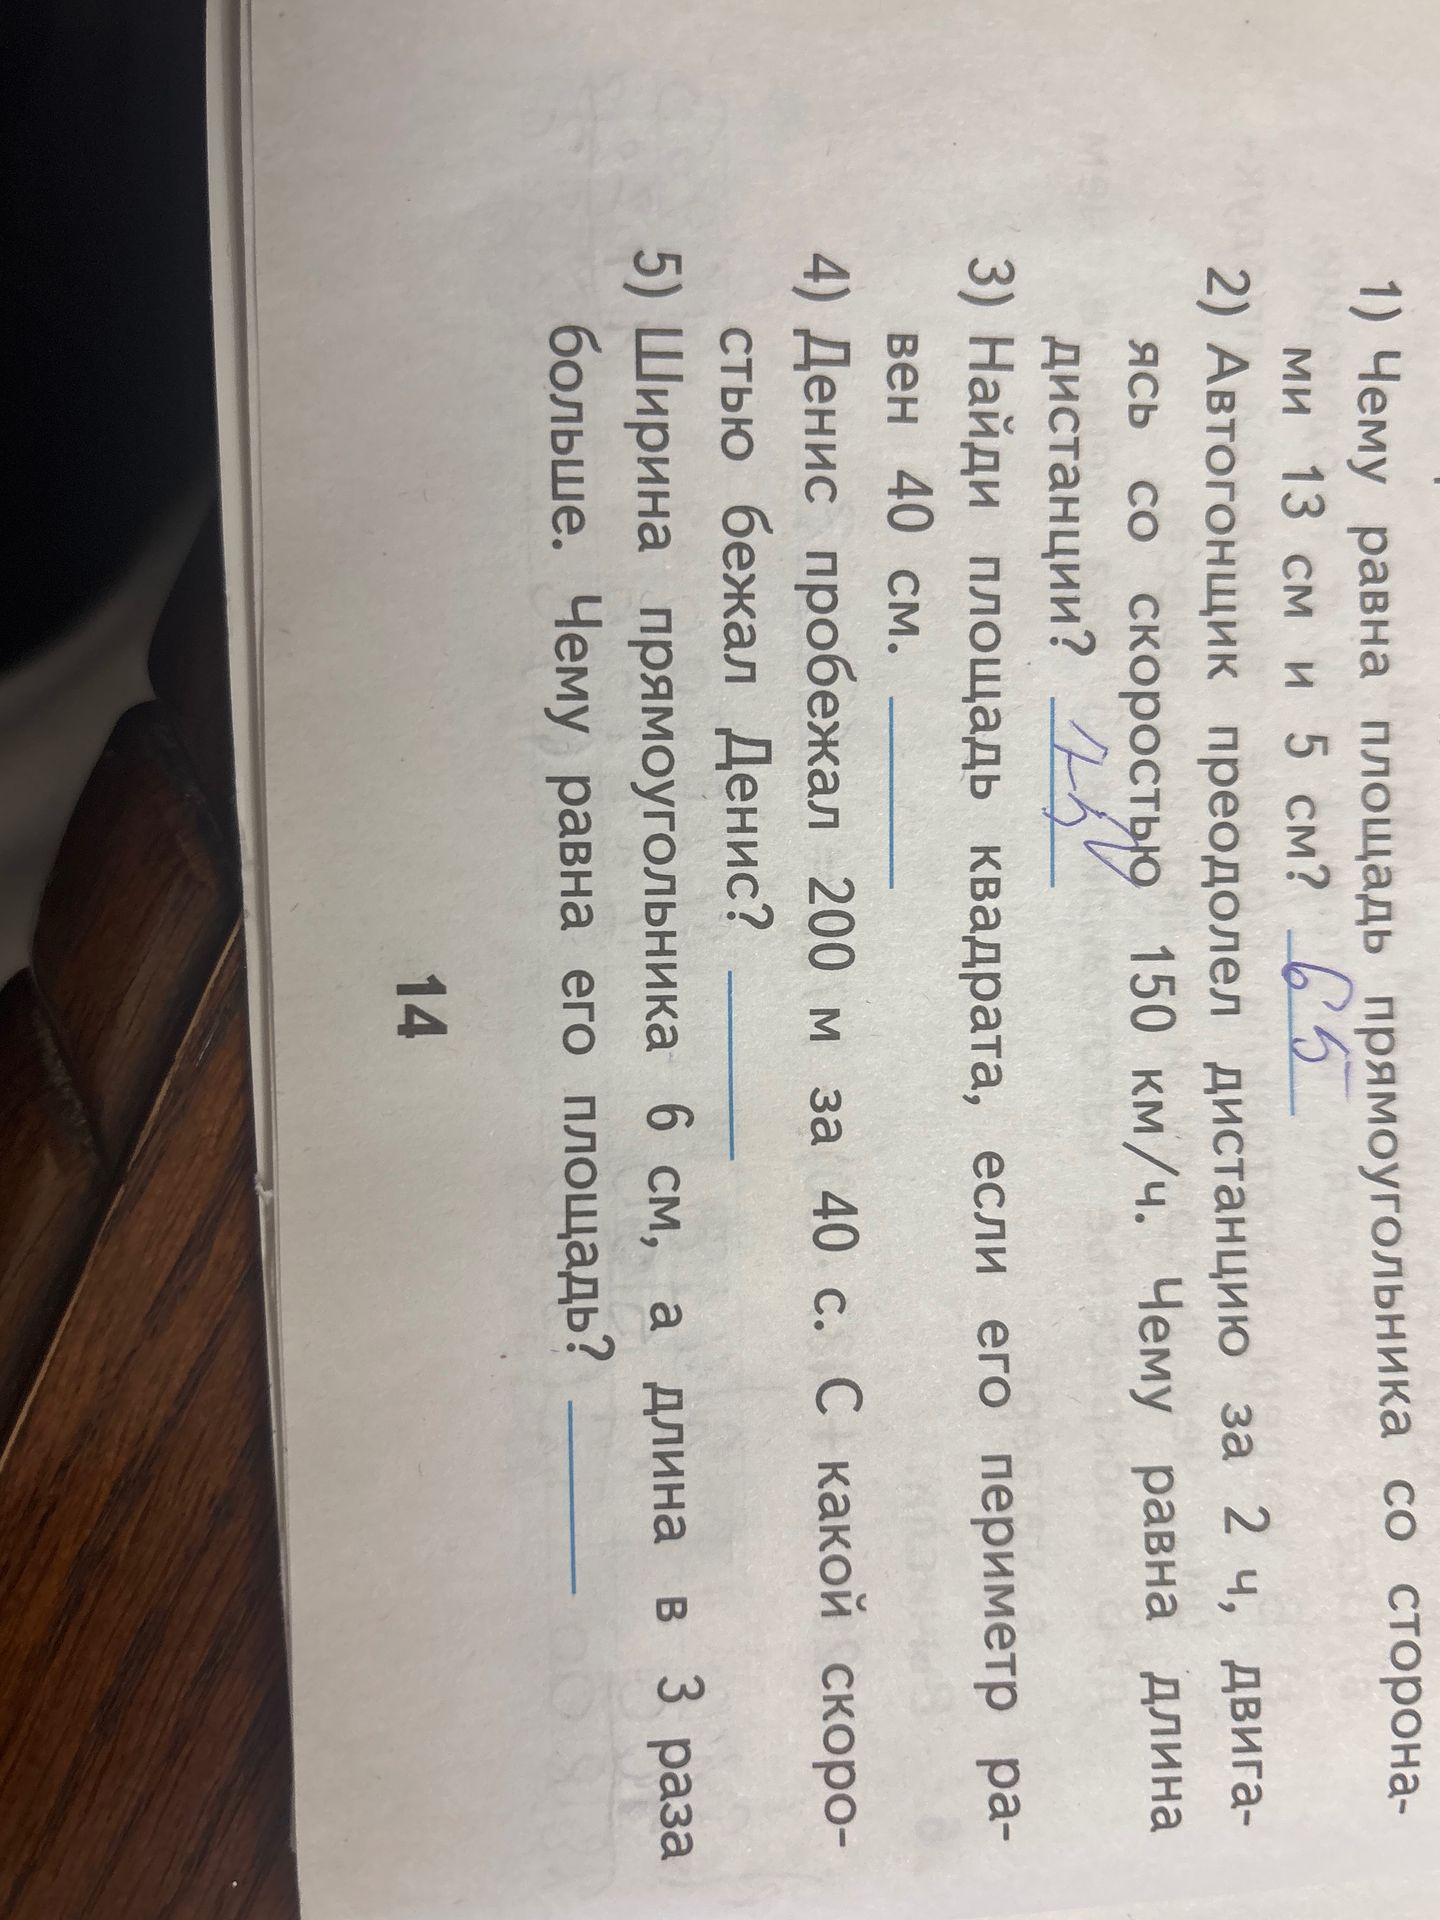 1) Чему равна площадь прямоугольника со сторона-
ми 13 см и 5 см? 65
2) Автогонщик преодолел дистанцию за 2 ч, двига-
ясь со скоростью 150 км/ч. Чему равна длина
дистанции?
3) Найди площадь квадрата, если его периметр ра-
вен 40 см.
4) Денис пробежал 200 м за 40 с. С какой скоро-
стью бежал Денис?
5) Ширина прямоугольника 6 см, а длина в 3 раза
больше. Чему равна его площадь?
14